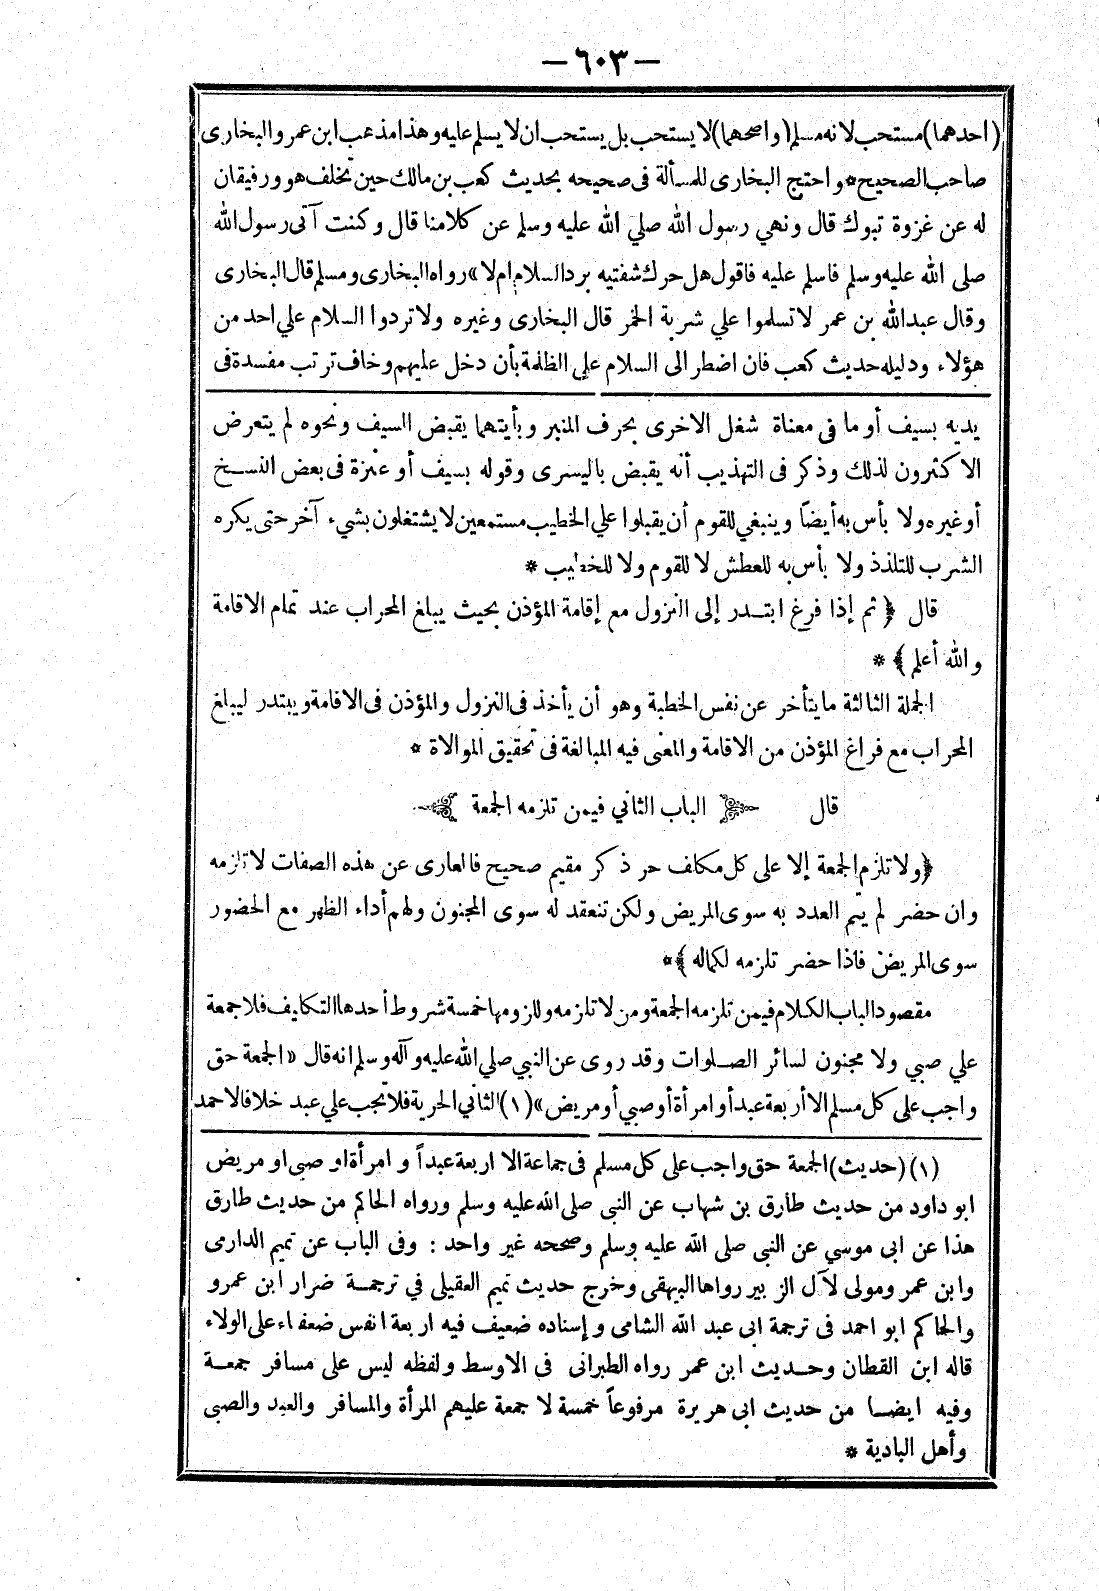 — ٦٠٣ —
(احدهما) مستحب لانه مسلم (واصحهما) لا يستحب بل يستحب ان لا يسلم عليه وهذا مذهب ابن عمر والبخارى
صاحب الصحيح * واحتج البخارى للمسألة فى صحيحه بحديث كعب بن مالك حين تخلف هو ورفيقان
له عن غزوة تبوك قال ونهي رسول الله صلي الله عليه وسلم عن كلامنا قال وكنت آتى رسول الله
صلى الله عليه وسلم فاسلم عليه فاقول هل حرك شفتيه برد السلام ام لا » رواه البخارى ومسلم قال البخارى
وقال عبدالله بن عمر لا تسلموا علي شربة الخمر قال البخارى وغيره ولا تردوا السلام علي احد من
هؤلاء ودليله حديث كعب فان اضطر الى السلام علي الظلمة بأن دخل عليهم وخاف ترتب مفسدة فى
يديه بسيف أو ما فى معناة شغل الاخرى بحرف المنبر وبأيتهما يقبض السيف ونحوه لم يتعرض
الاكثرون لذلك وذكر فى التهذيب أنه يقبض باليسرى وقوله بسيف أو عنزة فى بعض النسخ
أو غيره ولا بأس به أيضا وينبغي للقوم أن يقبلوا علي الخطيب مستمعين لا يشتغلون بشيء آخر حتى يكره
الشرب للتلذذ ولا بأس به للعطش لا للقوم ولا للخطيب *
قال ﴿ثم إذا فرغ ابتدر إلى النزول مع إقامة المؤذن بحيث يبلغ المحراب عند تمام الاقامة
والله أعلم﴾ *
الجملة الثالثة ما يتأخر عن نفس الخطبة وهو أن يأخذ فى النزول والمؤذن فى الاقامة ويبتدر ليبلغ
المحراب مع فراغ المؤذن من الاقامة والمعنى فيه المبالغة فى تحقيق الموالاة *
قال الباب الثاني فيمن تلزمه الجمعة
﴿ولا تلزم الجمعة إلا على كل مكلف حر ذكر مقيم صحيح فالعارى عن هذه الصفات لا تلزمه
وان حضر لم يتم العدد به سوى المريض ولكن تنعقد له سوى المجنون ولهم أداء الظهر مع الحضور
سوى المريض فاذا حضر تلزمه لكماله﴾ *
مقصود الباب الكلام فيمن تلزمه الجمعة ومن لا تلزمه وللزومها خمسة شروط أحدها التكليف فلا جمعة
علي صبي ولا مجنون لسائر الصلوات وقد روى عن النبي صلي الله عليه وآله وسلم انه قال « الجمعة حق
واجب على كل مسلم الا أربعة عبد أو امرأة أو صبي أو مريض » (١) الثاني الحرية فلا تجب علي عبد خلافا لاحمد
(١) (حديث) الجمعة حق واجب على كل مسلم فى جماعة الا اربعة عبداً وامرأة او صبى او مريض
ابو داود من حديث طارق بن شهاب عن النبى صلى الله عليه وسلم ورواه الحاكم من حديث طارق
هذا عن ابى موسي عن النبى صلى الله عليه وسلم وصححه غير واحد : وفى الباب عن تميم الدارمى
وابن عمر ومولى لآل الزبير رواها البيهقى وخرج حديث تميم العقيلى في ترجمة ضرار ابن عمرو
والحاكم ابو احمد فى ترجمة ابى عبد الله الشامى وإسناده ضعيف فيه اربعة انفس ضعفاء على الولاء
قاله ابن القطان وحديث ابن عمر رواه الطبرانى فى الاوسط ولفظه ليس على مسافر جمعة
وفيه ايضا من حديث ابى هريرة مرفوعاً خمسة لا جمعة عليهم المرأة والمسافر والعبد والصبى
وأهل البادية *